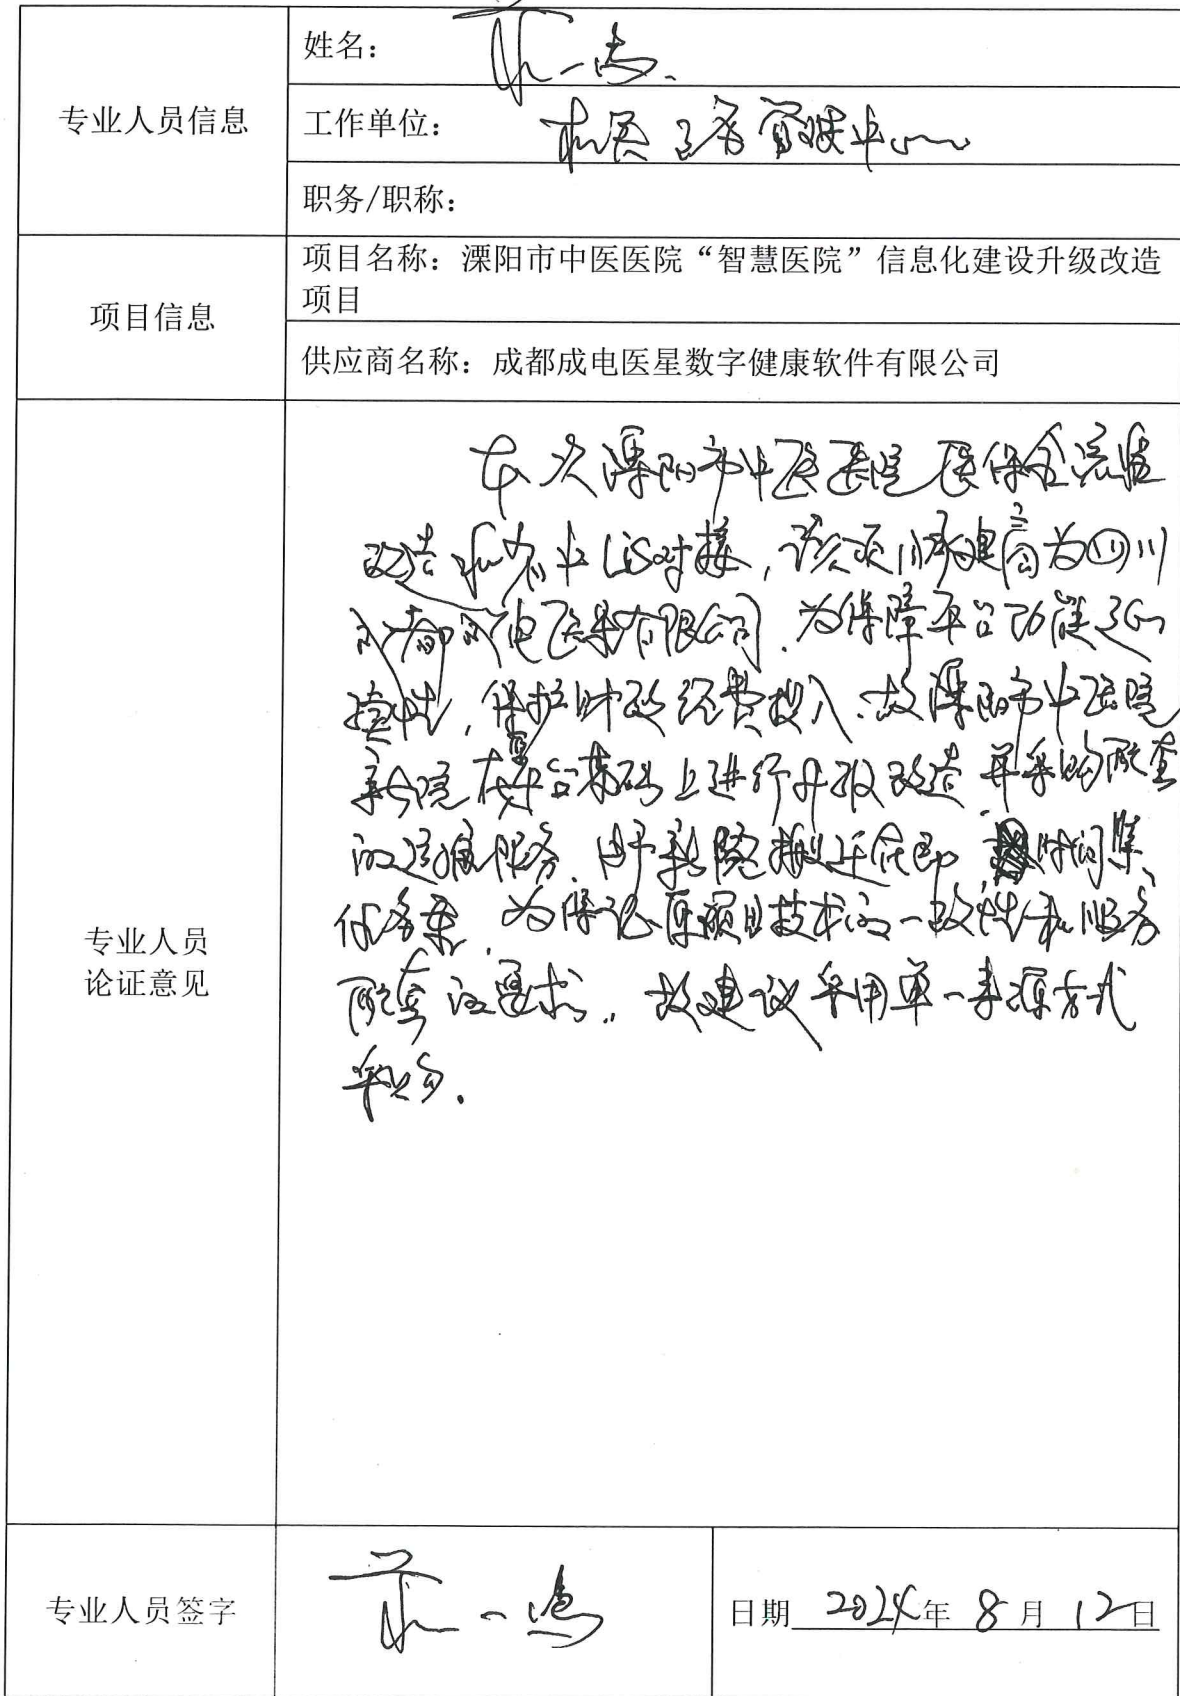 专业人员信息
姓名：
工作单位： 中心
职务/职称：
项目信息
项目名称：溧阳市中医医院“智慧医院”信息化建设升级改造
项目
供应商名称：成都成电医星数字健康软件有限公司
专业人员
论证意见
本次溧阳市中医医院医保全流程
改造和 LIS对接，该项 承建商为四川
成都成电医星有限公司，为保障平台功能延
续性，保护财政经费投入，故溧阳市中医院
新院在平台基础上进行升级改造，并采购配套
的运维服务，由于新院搬迁在即，时间紧、
任务重，为保证原项目技术的一致性和服务
配套的要求，故建议采用单一来源方式
采购.
专业人员签字
日期 2024年 8月 12日